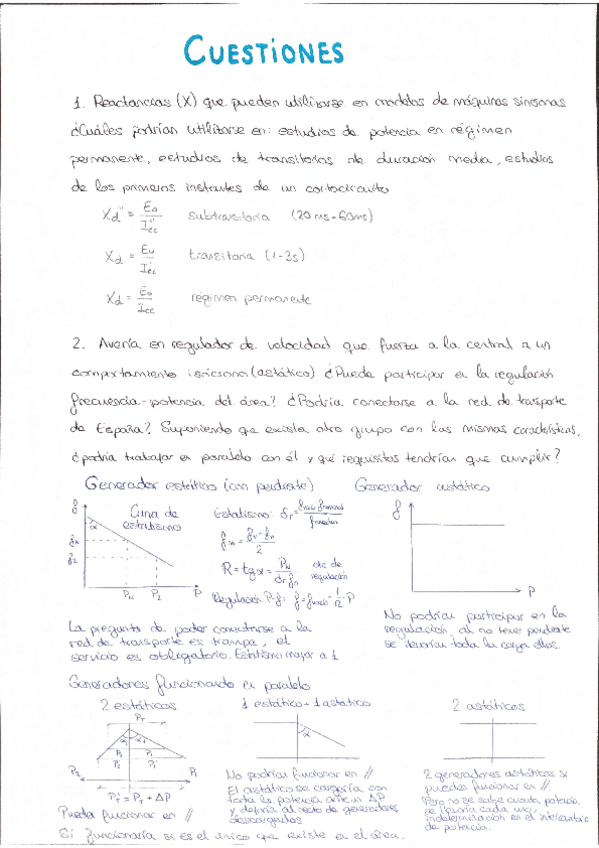 CUESTIONES
1. Reactancias (X) que pueden utilizarse en modelos de máquinas síncronas
¿Cuáles podrían utilizarse en: estudios de potencia en régimen
permanente, estudios de transitorios de duración media, estudios
de los primeros instantes de un cortocircuito
Xd'' = Eo / Icc'' subtransitoria (20ms-60ms)
Xd = Eo / Icc' transitoria (1-3s)
Xd = Eo / Icc régimen permanente
2. Avería en regulador de velocidad que fuerza a la central a un
comportamiento isócrono (astático) ¿Puede participar en la regulación
frecuencia-potencia del área? ¿Podría conectarse a la red de transporte
de España? Suponiendo que exista otro grupo con las mismas características,
¿podría trabajar en paralelo con él y qué requisitos tendrían que cumplir?
Generador estático (con pendiente) Generador astático
f Curva de estatismo
α
f2
P2 P
Estatismo:
R = tgα =
cte de regulación
Regulación P-f:
f
P
No podrían participar en la
regulación, al no tener pendiente
se llevarían toda la carga ellos.
La pregunta de poder conectarse a la
red de transporte es trampa, el
servicio es obligatorio. Estatismo mayor a 1
Generadores funcionando en paralelo
2 estáticos 1 estático + 1 astático 2 astáticos
PT
α
P2 P1
PT' = PT + ΔP
Pueden funcionar en //
No podrían funcionar en //
El astático se cargaría con
toda la potencia ΔP
y dejaría al resto de generadores
descargados
2 generadores astáticos sí
pueden funcionar en //.
Pero no se sabe cuánta potencia
se llevaría cada uno,
indeterminación en el intercambio
de potencia.
Sí funcionaría si es el único que existe en el área.